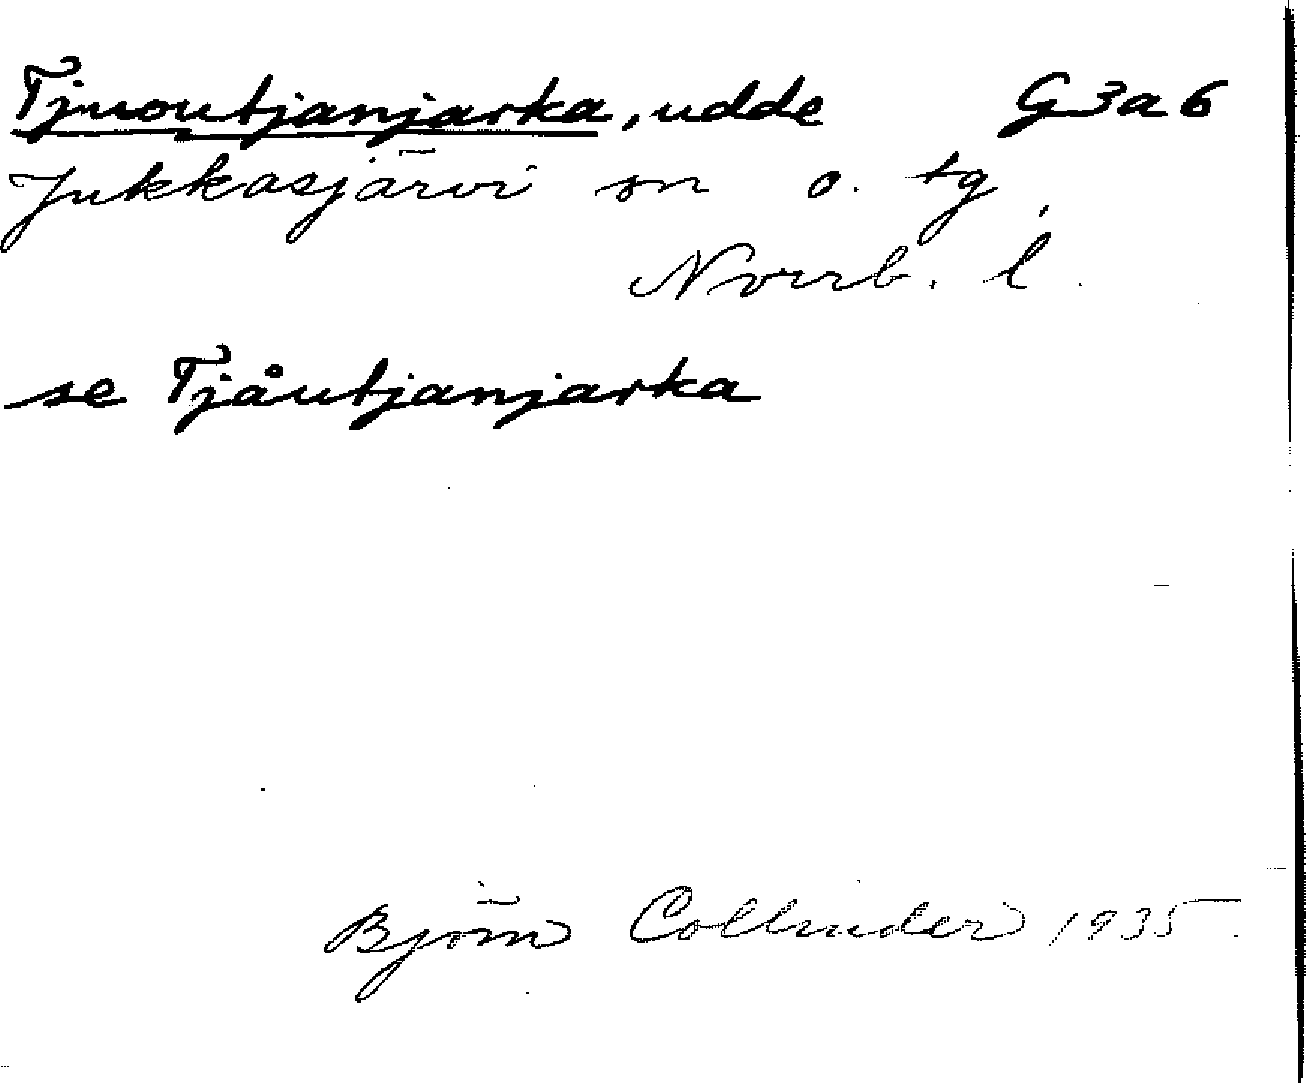 Tjuoutjanjarka, udde G3a6
Jukkasjärvi sn o. tg,
Norrb. l.
se Tjåutjanjarka
Björn Collinder 1935.